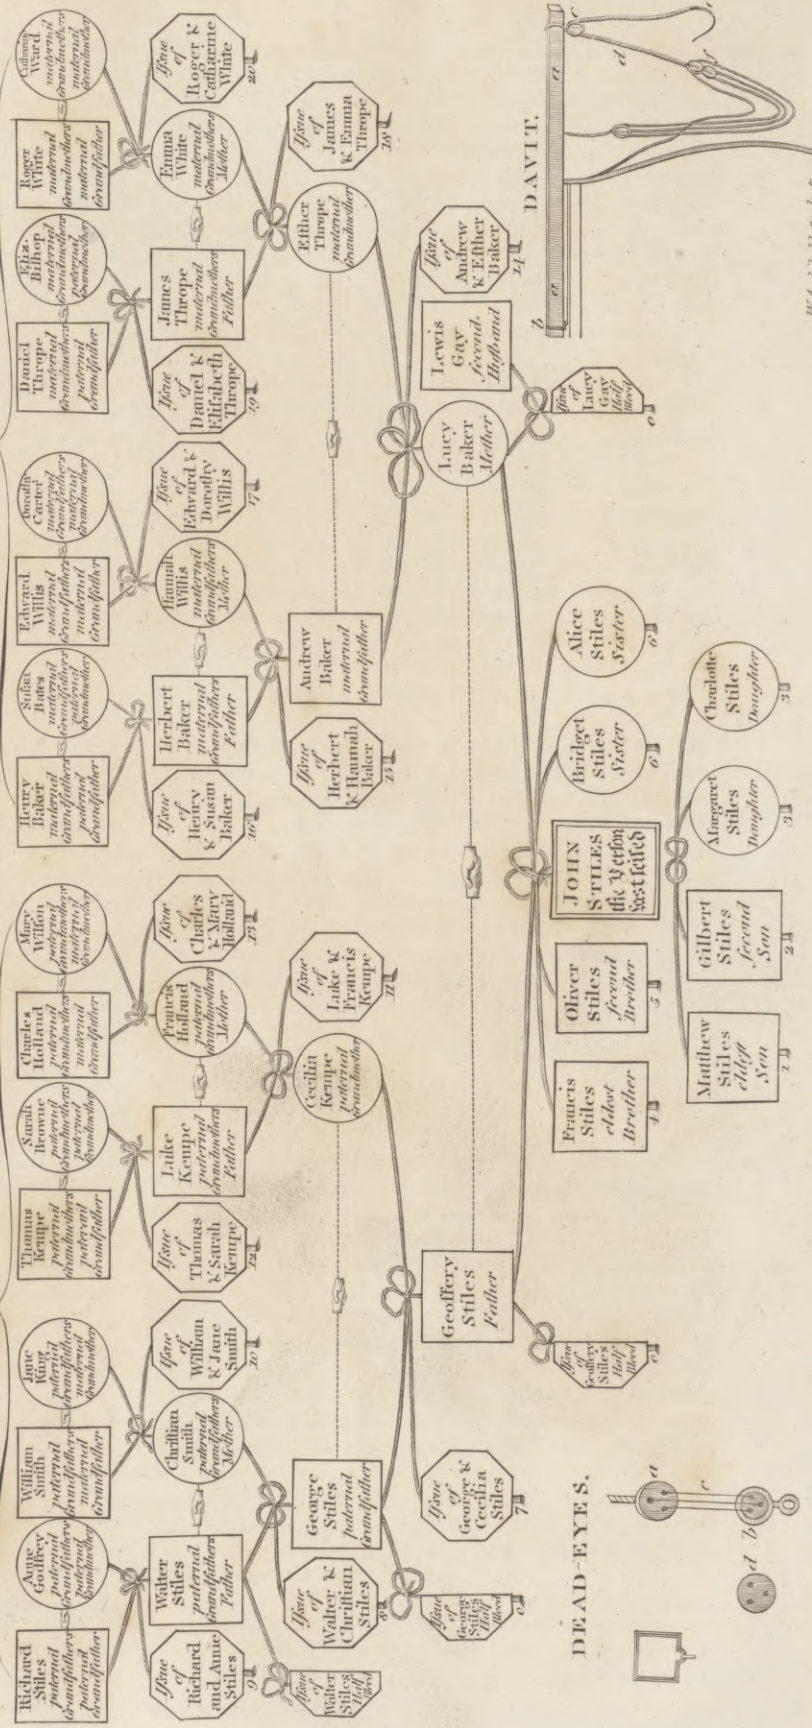 Richard
Stiles
paternal
Grandfathers
paternal
Grandfather
Anne
Godfrey
paternal
Grandfathers
paternal
Grandmother
William
Smith
paternal
Grandfathers
maternal
Grandfather
Jane
King
paternal
Grandfathers
maternal
Grandmother
Thomas
Kempe
paternal
Grandmothers
paternal
Grandfather
Sarah
Browne
paternal
Grandmothers
paternal
Grandmother
Charles
Holland
paternal
Grandmothers
maternal
Grandfather
Mary
Wilson
paternal
Grandmothers
maternal
Grandmother
Henry
Baker
maternal
Grandfathers
paternal
Grandfather
Susan
Bates
maternal
Grandfathers
paternal
Grandmother
Edward
Willis
maternal
Grandfathers
maternal
Grandfather
Dorothy
Carter
maternal
Grandfathers
maternal
Grandmother
Daniel
Thrope
maternal
Grandmothers
paternal
Grandfather
Eliz.
Bishop
maternal
Grandmothers
paternal
Grandmother
Roger
White
maternal
Grandmothers
maternal
Grandfather
Catharine
Ward
maternal
Grandmothers
maternal
Grandmother
Issue
of
Richard
and Anne
Stiles
9
Walter
Stiles
paternal
Grandfathers
Father
Christian
Smith
paternal
Grandfathers
Mother
Issue
of
William
& Jane
Smith
10
Issue
of
Thomas
& Sarah
Kempe
12
Luke
Kempe
paternal
Grandmothers
Father
Francis
Holland
paternal
Grandmothers
Mother
Issue
of
Charles
& Mary
Holland
13
Issue
of
Henry
& Susan
Baker
16
Herbert
Baker
maternal
Grandfathers
Father
Hannah
Willis
maternal
Grandfathers
Mother
Issue
of
Edward &
Dorothy
Willis
17
Issue
of
Daniel &
Elisabeth
Thrope
19
James
Thrope
maternal
Grandmothers
Father
Emma
White
maternal
Grandmothers
Mother
Issue
of
Roger &
Catharine
White
20
Issue
of
Walter
Stiles
Half
Blood
Issue
of
Walter &
Christian
Stiles
8
George
Stiles
paternal
Grandfather
Cecilia
Kempe
paternal
Grandmother
Issue
of
Luke &
Francis
Kempe
11
Issue
of
Herbert
& Hannah
Baker
15
Andrew
Baker
maternal
Grandfather
Esther
Thrope
maternal
Grandmother
Issue
of
James
& Emma
Thrope
18
Issue
of
George
Stiles
Half
Blood
0
Issue
of
George &
Cecilia
Stiles
7
Geoffery
Stiles
Father
Lucy
Baker
Mother
Lewis
Gay
second
Husband
Issue
of
Andrew
& Esther
Baker
14
Issue
of
Geoffery
Stiles
Half
Blood
0
Francis
Stiles
eldest
Brother
4
Oliver
Stiles
second
Brother
5
JOHN
STILES
the Person
last seised
Bridget
Stiles
Sister
6
Alice
Stiles
Sister
6
Issue
of
Lucy
Gay
Half
Blood
0
Matthew
Stiles
eldest
Son
1
Gilbert
Stiles
second
Son
2
Margaret
Stiles
Daughter
3
Charlotte
Stiles
Daughter
3
DEAD-EYES.
a
c
d b
DAVIT.
b a a
c
d
f